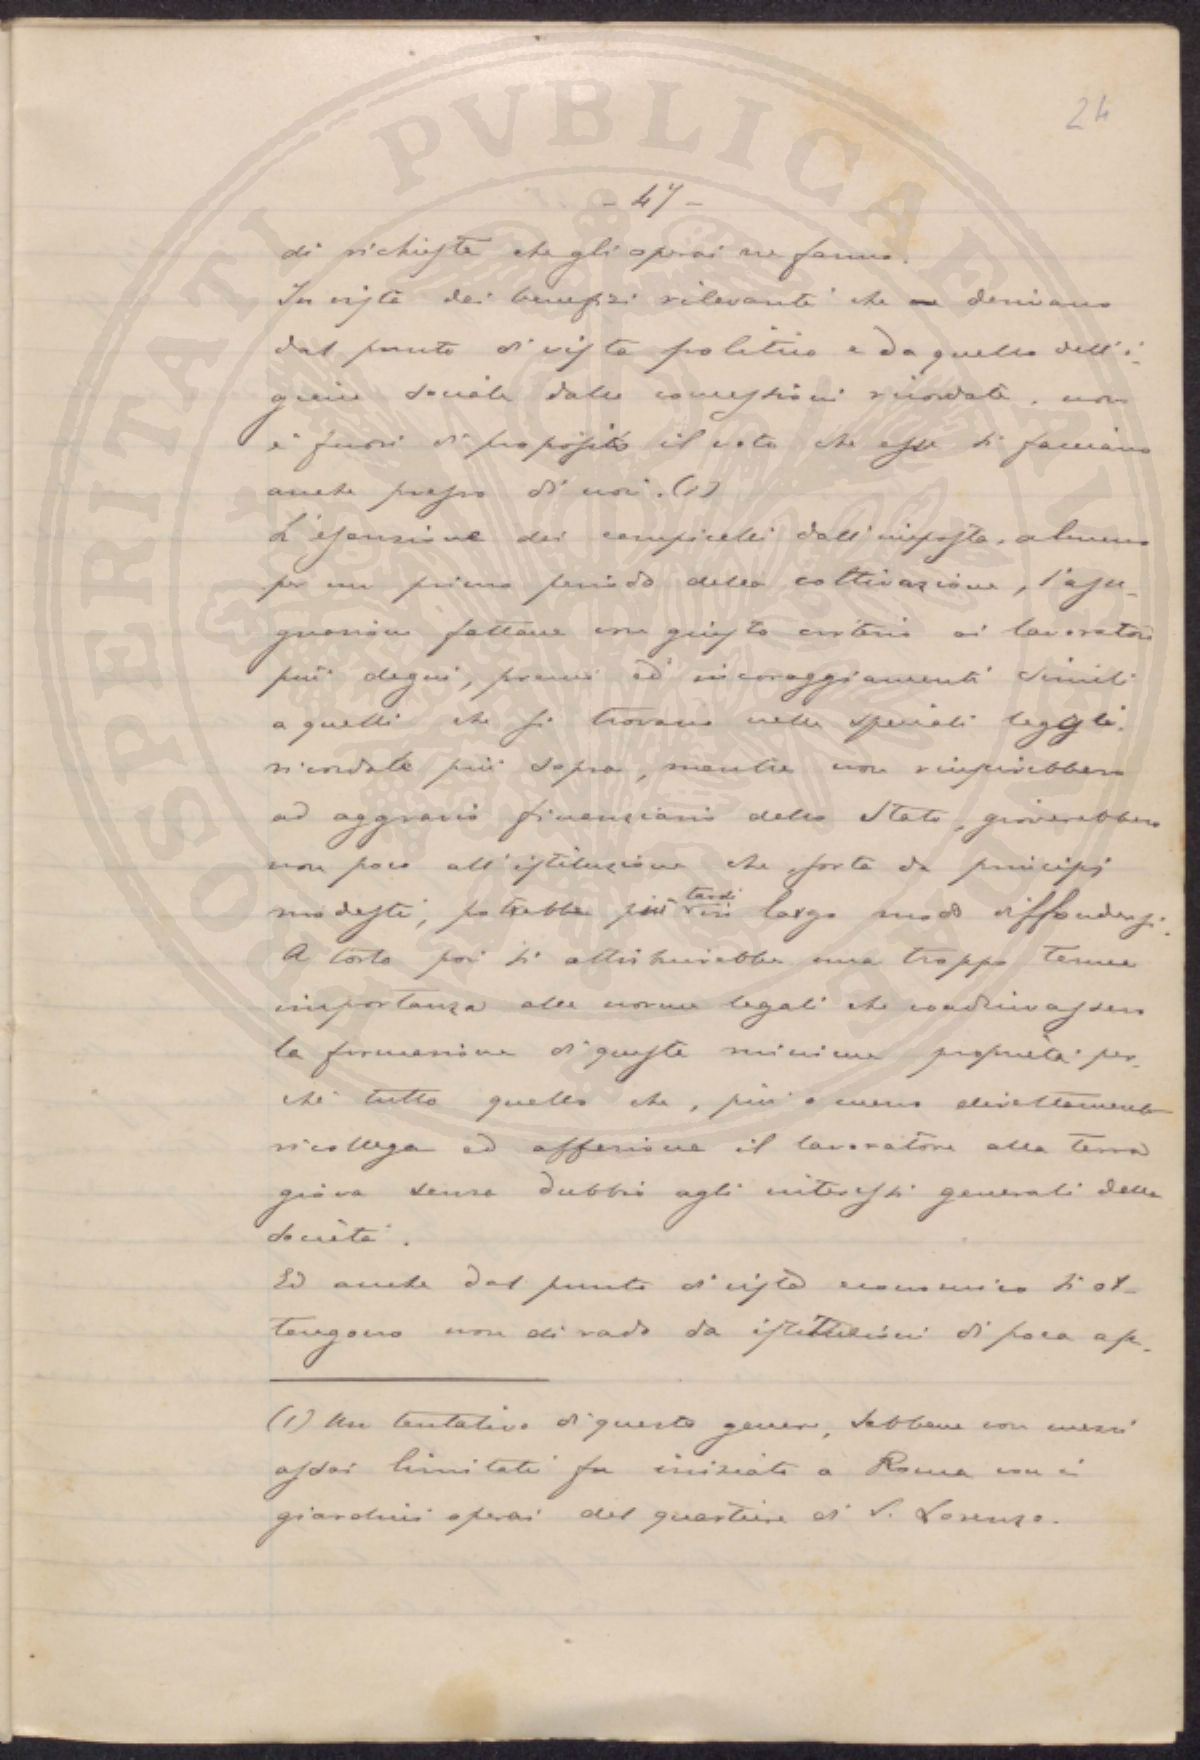 24
- 47 -
di richieste che gli operai ne fanno.
In vista dei benefizi rilevanti che ne derivano
dal punto di vista politico e da quello dell'i-
giene sociale dalle concessioni ricordate, non
è fuori di proposito il voto che esse si facciano
anche presso di noi. (1)
L'esenzione dei campicelli dall'imposta, almeno
per un primo periodo della coltivazione, l'asse-
gnazione fattane con giusto criterio ai lavoratori
più degni, premi ed incoraggiamenti simili
a quelli che si trovano nelle speciali leggi
ricordate più sopra, mentre non riuscirebbero
ad aggravio finanziario dello Stato, gioverebbero
non poco all'istituzione che, sorta da principi
modesti, potrebbe più tardi in largo modo diffondersi.
A torto poi si attribuirebbe una troppo tenue
importanza alle norme legali che coadiuvassero
la formazione di queste minime proprietà per-
chè tutto quello che, più o meno direttamente
ricollega ed affeziona il lavoratore alla terra
giova senza dubbio agli interessi generali della
società.
Ed anche dal punto di vista economico si ot-
tengono non di rado da istituzioni di poca ap-
(1) Un tentativo di questo genere, sebbene con mezzi
assai limitati fu iniziato a Roma con i
giardini operai del quartiere di S. Lorenzo.
PROSPERITATI PVBLICAE